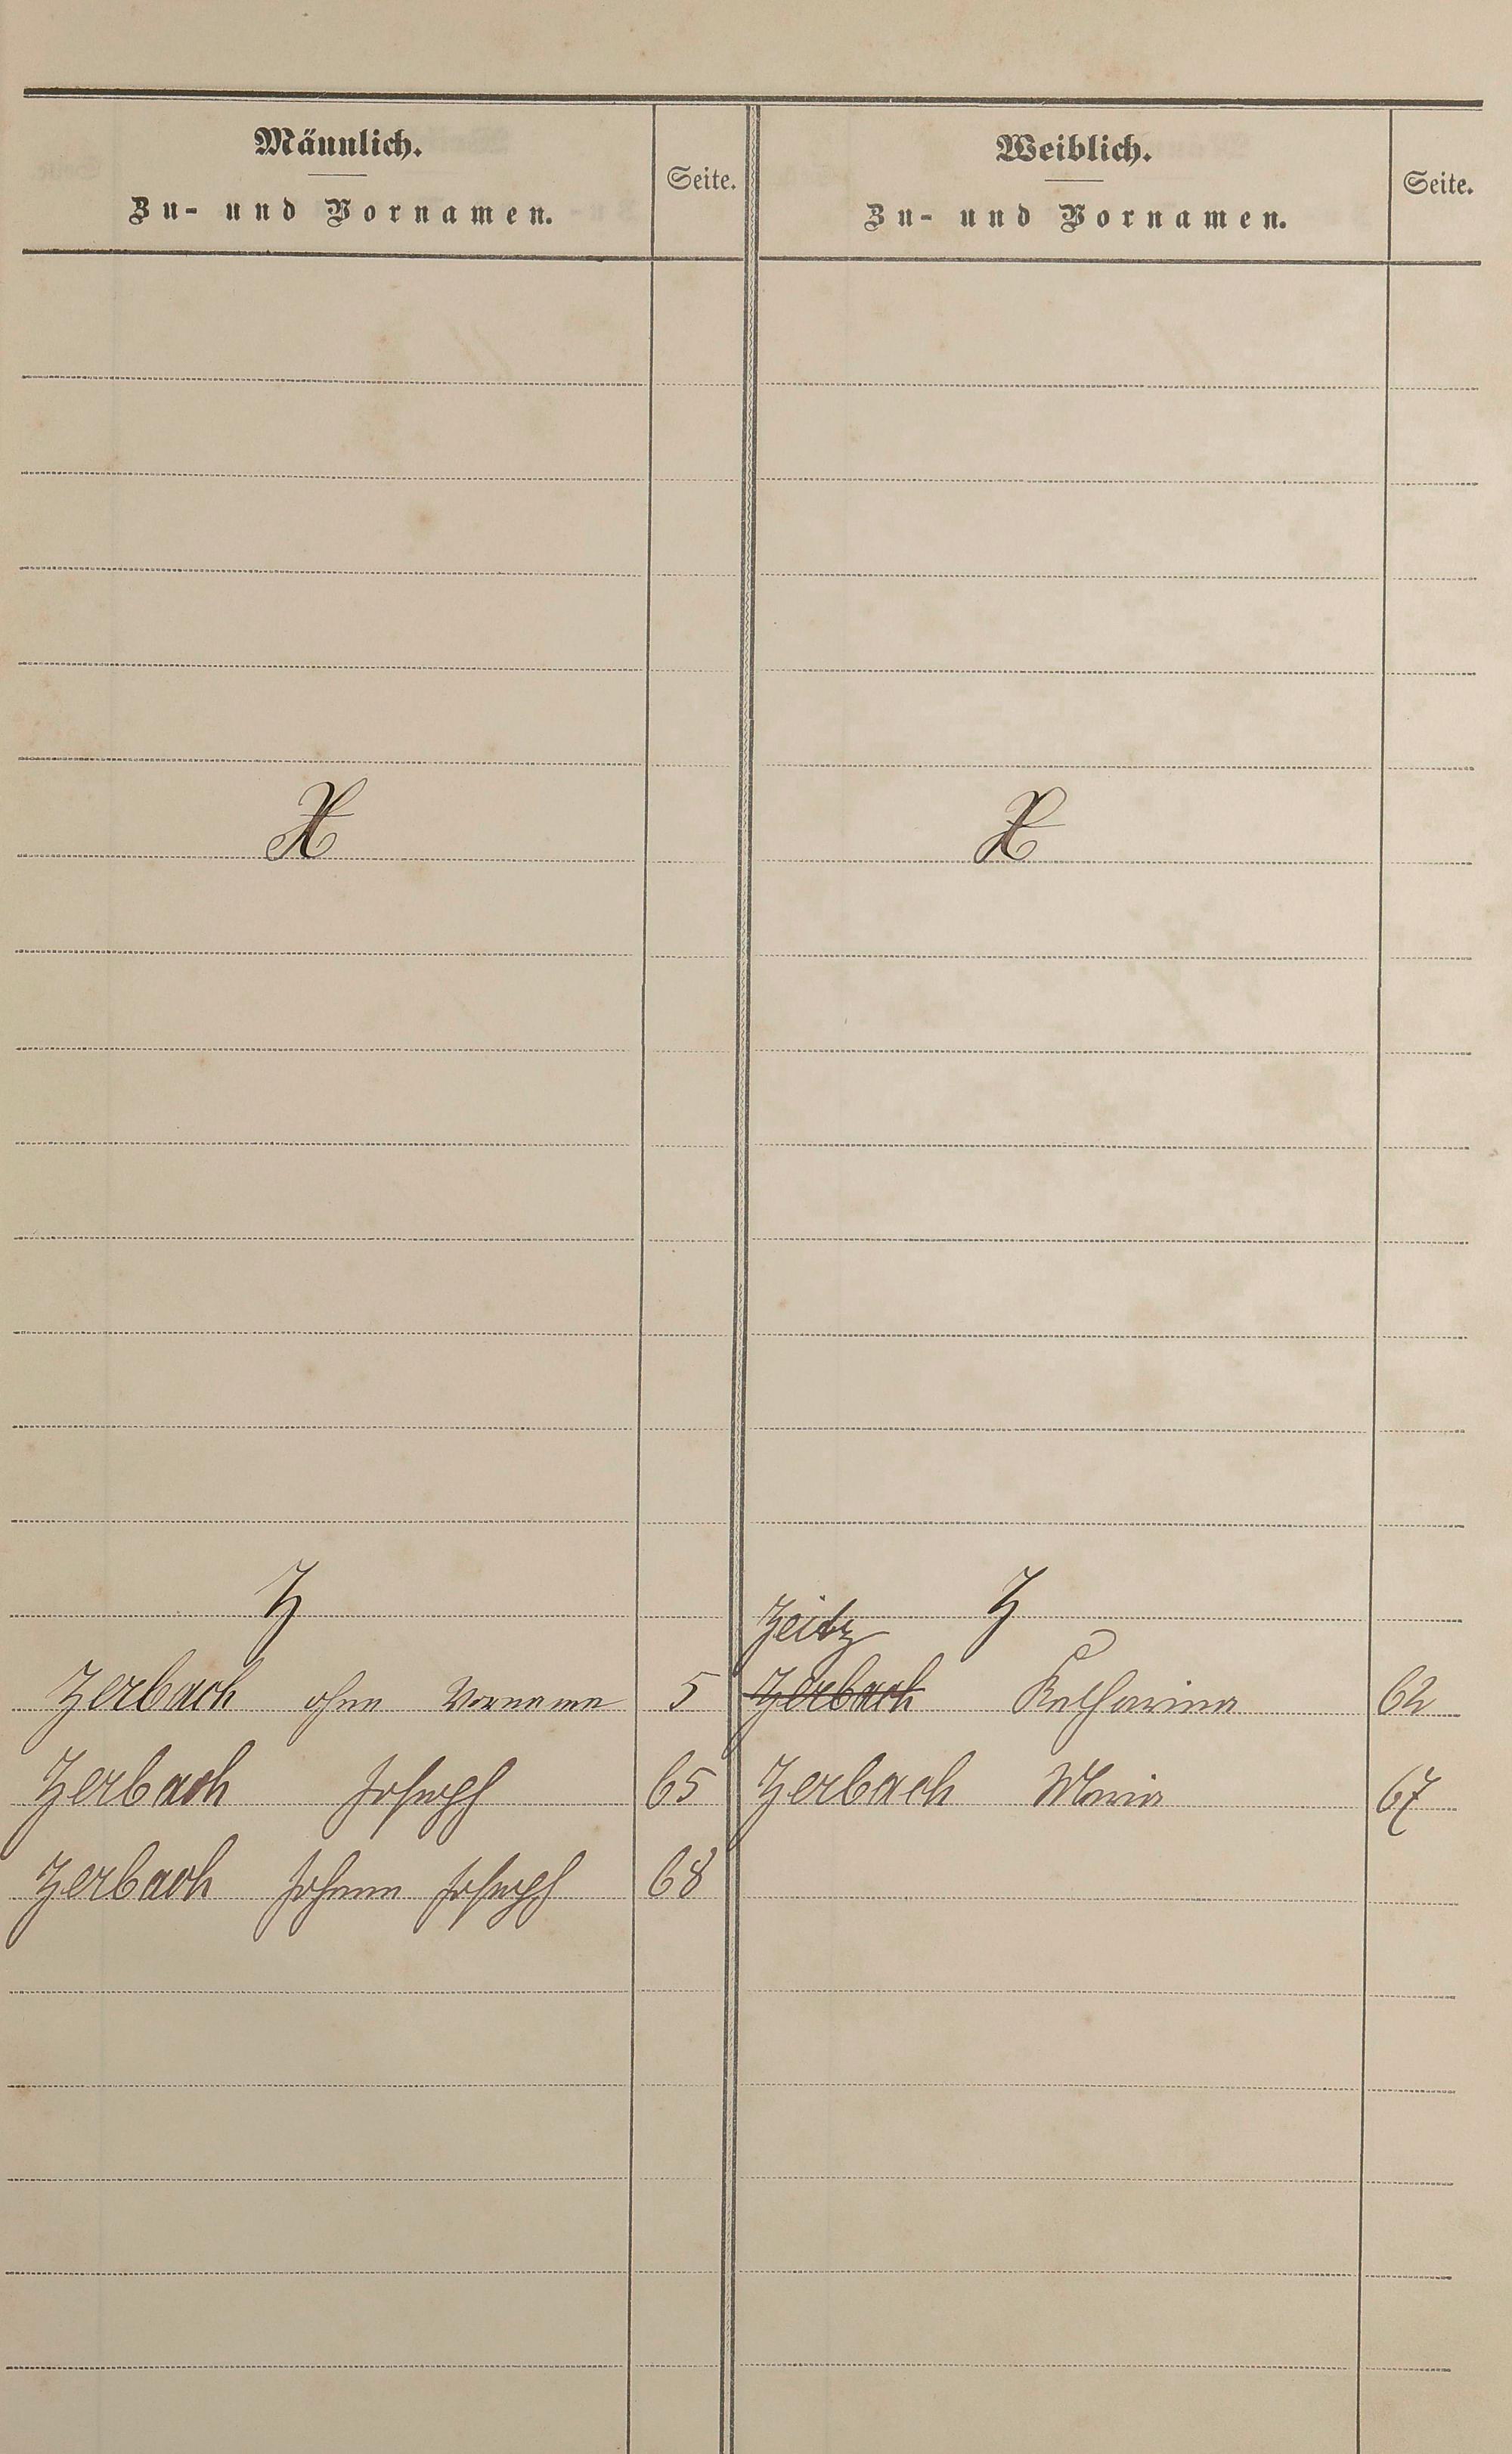 Männlich. Seite. Weiblich. Seite.
Zu- und Vornamen. Zu- und Vornamen.
X X
Z Z
Zeitz
Zerbach ohne Vorname 5 Zerbach Katharina 62
Zerbach Joseph 65 Zerbach Maria 67
Zerbach Johann Joseph 68